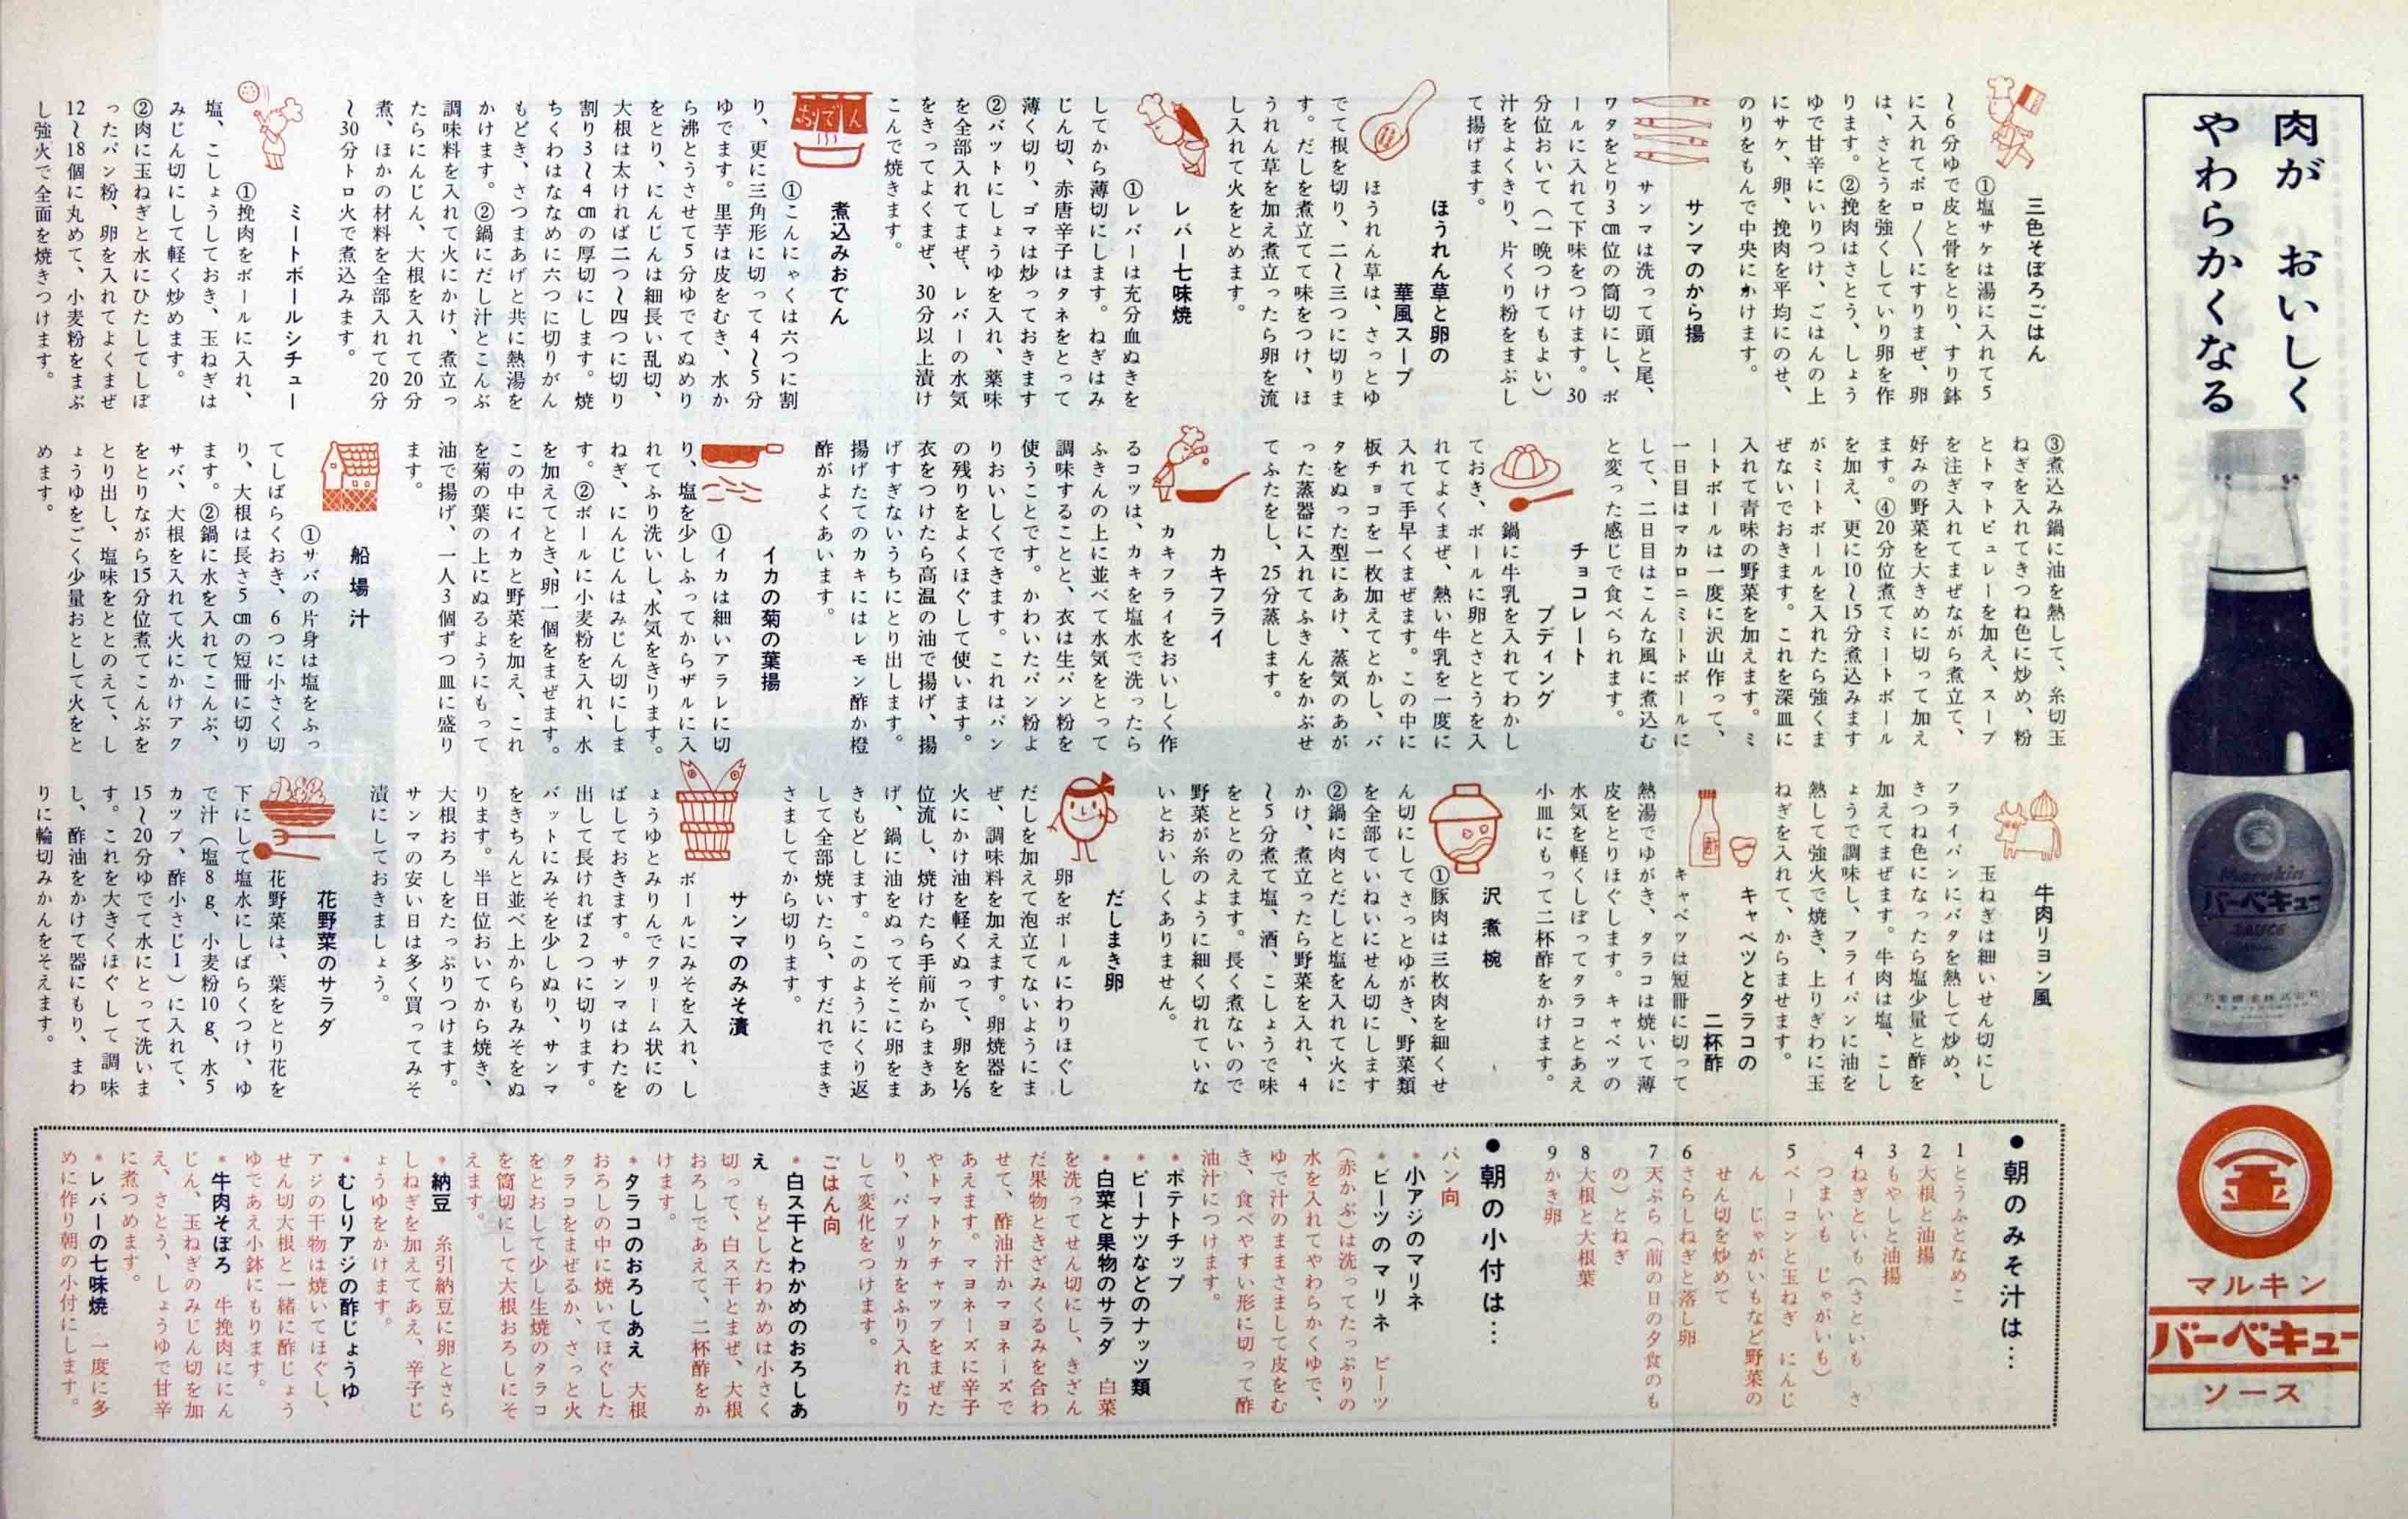 肉が おいしく
やわらかくなる
Marukin
バーベキュー
SAUCE
マルキン
バーベキュー
ソース
三色そぼろごはん
①塩サケは湯に入れて5
〜6分ゆで皮と骨をとり、すり鉢
に入れてポロ〱にすりまぜ、卵
は、さとうを強くしていり卵を作
ります。②挽肉はさとう、しょう
ゆで甘辛にいりつけ、ごはんの上
にサケ、卵、挽肉を平均にのせ、
のりをもんで中央にかけます。
サンマのから揚
サンマは洗って頭と尾、
ワタをとり3㎝位の筒切にし、ボ
ールに入れて下味をつけます。30
分位おいて(一晩つけてもよい)
汁をよくきり、片くり粉をまぶし
て揚げます。
ほうれん草と卵の
華風スープ
ほうれん草は、さっとゆ
でて根を切り、二〜三つに切りま
す。だしを煮立てて味をつけ、ほ
うれん草を加え煮立ったら卵を流
し入れて火をとめます。
レバー七味焼
①レバーは充分血ぬきを
してから薄切にします。ねぎはみ
じん切、赤唐辛子はタネをとって
薄く切り、ゴマは炒っておきます
②バットにしょうゆを入れ、薬味
を全部入れてまぜ、レバーの水気
をきってよくまぜ、30分以上漬け
こんで焼きます。
おでん
煮込みおでん
①こんにゃくは六つに割
り、更に三角形に切って4〜5分
ゆでます。里芋は皮をむき、水か
ら沸とうさせて5分ゆでてぬめり
をとり、にんじんは細長い乱切、
大根は太ければ二つ〜四つに切り
割り3〜4㎝の厚切にします。焼
ちくわはななめに六つに切りがん
もどき、さつまあげと共に熱湯を
かけます。②鍋にだし汁とこんぶ
調味料を入れて火にかけ、煮立っ
たらにんじん、大根を入れて20分
煮、ほかの材料を全部入れて20分
〜30分トロ火で煮込みます。
ミートボールシチュー
①挽肉をボールに入れ、
塩、こしょうしておき、玉ねぎは
みじん切にして軽く炒めます。
②肉に玉ねぎと水にひたしてしぼ
ったパン粉、卵を入れてよくまぜ
12〜18個に丸めて、小麦粉をまぶ
し強火で全面を焼きつけます。
③煮込み鍋に油を熱して、糸切玉
ねぎを入れてきつね色に炒め、粉
とトマトピュレーを加え、スープ
を注ぎ入れてまぜながら煮立て、
好みの野菜を大きめに切って加え
ます。④20分位煮てミートボール
を加え、更に10〜15分煮込みます
がミートボールを入れたら強くま
ぜないでおきます。これを深皿に
入れて青味の野菜を加えます。ミ
ートボールは一度に沢山作って、
一日目はマカロニミートボールに
して、二日目はこんな風に煮込む
と変った感じで食べられます。
チョコレート
プディング
鍋に牛乳を入れてわかし
ておき、ボールに卵とさとうを入
れてよくまぜ、熱い牛乳を一度に
入れて手早くまぜます。この中に
板チョコを一枚加えてとかし、バ
タをぬった型にあけ、蒸気のあが
った蒸器に入れてふきんをかぶせ
てふたをし、25分蒸します。
カキフライ
カキフライをおいしく作
るコツは、カキを塩水で洗ったら
ふきんの上に並べて水気をとって
調味することと、衣は生パン粉を
使うことです。かわいたパン粉よ
りおいしくできます。これはパン
の残りをよくほぐして使います。
衣をつけたら高温の油で揚げ、揚
げすぎないうちにとり出します。
揚げたてのカキにはレモン酢か橙
酢がよくあいます。
イカの菊の葉揚
①イカは細いアラレに切
り、塩を少しふってからザルに入
れてふり洗いし、水気をきります。
ねぎ、にんじんはみじん切にしま
す。②ボールに小麦粉を入れ、水
を加えてとき、卵一個をまぜます。
この中にイカと野菜を加え、これ
を菊の葉の上にぬるようにもって
油で揚げ、一人3個ずつ皿に盛り
ます。
船場汁
①サバの片身は塩をふっ
てしばらくおき、6つに小さく切
り、大根は長さ5㎝の短冊に切り
ます。②鍋に水を入れてこんぶ、
サバ、大根を入れて火にかけアク
をとりながら15分位煮てこんぶを
とり出し、塩味をととのえて、し
ょうゆをごく少量おとして火をと
めます。
牛肉リヨン風
玉ねぎは細いせん切にし
フライパンにバタを熱して炒め、
きつね色になったら塩少量と酢を
加えてまぜます。牛肉は塩、こし
ょうで調味し、フライパンに油を
熱して強火で焼き、上りぎわに玉
ねぎを入れて、からませます。
酢
キャベツとタラコの
二杯酢
キャベツは短冊に切って
熱湯でゆがき、タラコは焼いて薄
皮をとりほぐします。キャベツの
水気を軽くしぼってタラコとあえ
小皿にもって二杯酢をかけます。
沢煮椀
①豚肉は三枚肉を細くせ
ん切にしてさっとゆがき、野菜類
を全部ていねいにせん切にします
②鍋に肉とだしと塩を入れて火に
かけ、煮立ったら野菜を入れ、4
〜5分煮て塩、酒、こしょうで味
をととのえます。長く煮ないので
野菜が糸のように細く切れていな
いとおいしくありません。
だしまき卵
卵をボールにわりほぐし
だしを加えて泡立てないようにま
ぜ、調味料を加えます。卵焼器を
火にかけ油を軽くぬって、卵を⅕
位流し、焼けたら手前からまきあ
げ、鍋に油をぬってそこに卵をま
きもどします。このようにくり返
して全部焼いたら、すだれでまき
さましてから切ります。
サンマのみそ漬
ボールにみそを入れ、し
ょうゆとみりんでクリーム状にの
ばしておきます。サンマはわたを
出して長ければ2つに切ります。
バットにみそを少しぬり、サンマ
をきちんと並べ上からもみそをぬ
ります。半日位おいてから焼き、
大根おろしをたっぷりつけます。
サンマの安い日は多く買ってみそ
漬にしておきましょう。
花野菜のサラダ
花野菜は、葉をとり花を
下にして塩水にしばらくつけ、ゆ
で汁(塩8g、小麦粉10g、水5
カップ、酢小さじ1)に入れて、
15〜20分ゆでて水にとって洗いま
す。これを大きくほぐして調味
し、酢油をかけて器にもり、まわ
りに輪切みかんをそえます。
●朝のみそ汁は…
1 とうふとなめこ
2 大根と油揚
3 もやしと油揚
4 ねぎといも(さといも さ
つまいも じゃがいも)
5 ベーコンと玉ねぎ にんじ
ん じゃがいもなど野菜の
せん切を炒めて
6 さらしねぎと落し卵
7 天ぷら(前の日の夕食のも
の)とねぎ
8 大根と大根葉
9 かき卵
●朝の小付は…
パン向
*小アジのマリネ
*ビーツのマリネ ビーツ
(赤かぶ)は洗ってたっぷりの
水を入れてやわらかくゆで、
ゆで汁のままさまして皮をむ
き、食べやすい形に切って酢
油汁につけます。
*ポテトチップ
*ピーナツなどのナッツ類
*白菜と果物のサラダ 白菜
を洗ってせん切にし、きざん
だ果物ときざみくるみを合わ
せて、酢油汁かマヨネーズで
あえます。マヨネーズに辛子
やトマトケチャップをまぜた
り、パプリカをふり入れたり
して変化をつけます。
ごはん向
*白ス干とわかめのおろしあ
え もどしたわかめは小さく
切って、白ス干とまぜ、大根
おろしであえて、二杯酢をか
けます。
*タラコのおろしあえ 大根
おろしの中に焼いてほぐした
タラコをまぜるか、さっと火
をとおして少し生焼のタラコ
を筒切にして大根おろしにそ
えます。
*納豆 糸引納豆に卵とさら
しねぎを加えてあえ、辛子じ
ょうゆをかけます。
*むしりアジの酢じょうゆ
アジの干物は焼いてほぐし、
せん切大根と一緒に酢じょう
ゆであえ小鉢にもります。
*牛肉そぼろ 牛挽肉ににん
じん、玉ねぎのみじん切を加
え、さとう、しょうゆで甘辛
に煮つめます。
*レバーの七味焼 一度に多
めに作り朝の小付にします。